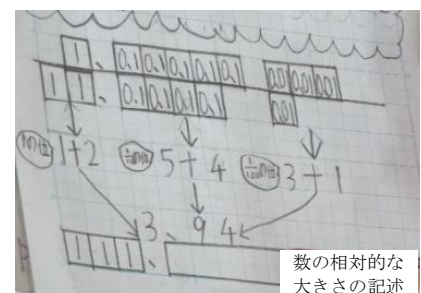 1、0.1 0.1 0.1 0.1 0.1 0.01 0.01 0.01
1 1、0.1 0.1 0.1 0.1 0.01
1の位 1+2 1/10の位 5+4 1/100の位 3+1
3、94
1 1 1、
数の相対的な
大きさの記述